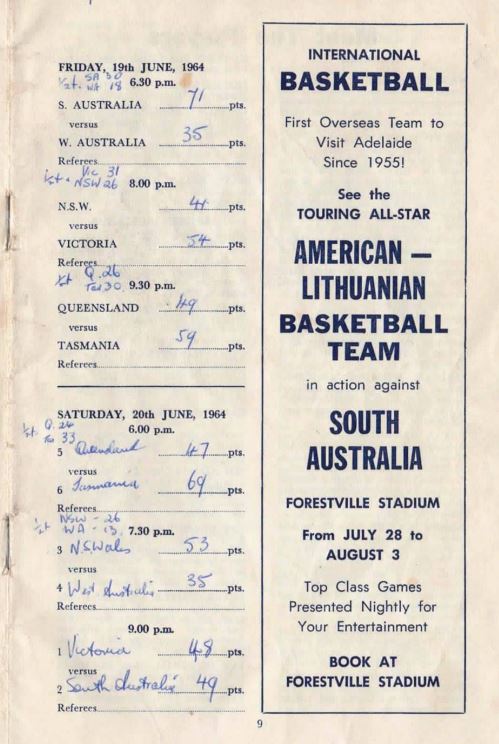 FRIDAY, 19th JUNE, 1964
½ t. SA 30
WA 18 6.30 p.m.
S. AUSTRALIA 71 pts.
versus
W. AUSTRALIA 35 pts.
Referees
½t. Vic 31
NSW 26 8.00 p.m.
N.S.W. 41 pts.
versus
VICTORIA 54 pts.
Referees
½t Q. 26
Tas 30 9.30 p.m.
QUEENSLAND 49 pts.
versus
TASMANIA 59 pts.
Referees
SATURDAY, 20th JUNE, 1964
½t. Q. 24 6.00 p.m.
Tas 33
5 Queensland 47 pts.
versus
6 Tasmania 69 pts.
Referees
½t NSW - 26
WA - 13 7.30 p.m.
3 N.S.Wales 53 pts.
versus
4 West Australia 35 pts.
Referees
9.00 p.m.
1 Victoria 48 pts.
versus
2 South Australia 49 pts.
Referees
9
INTERNATIONAL
BASKETBALL
First Overseas Team to
Visit Adelaide
Since 1955!
See the
TOURING ALL-STAR
AMERICAN —
LITHUANIAN
BASKETBALL
TEAM
in action against
SOUTH
AUSTRALIA
FORESTVILLE STADIUM
From JULY 28 to
AUGUST 3
Top Class Games
Presented Nightly for
Your Entertainment
BOOK AT
FORESTVILLE STADIUM